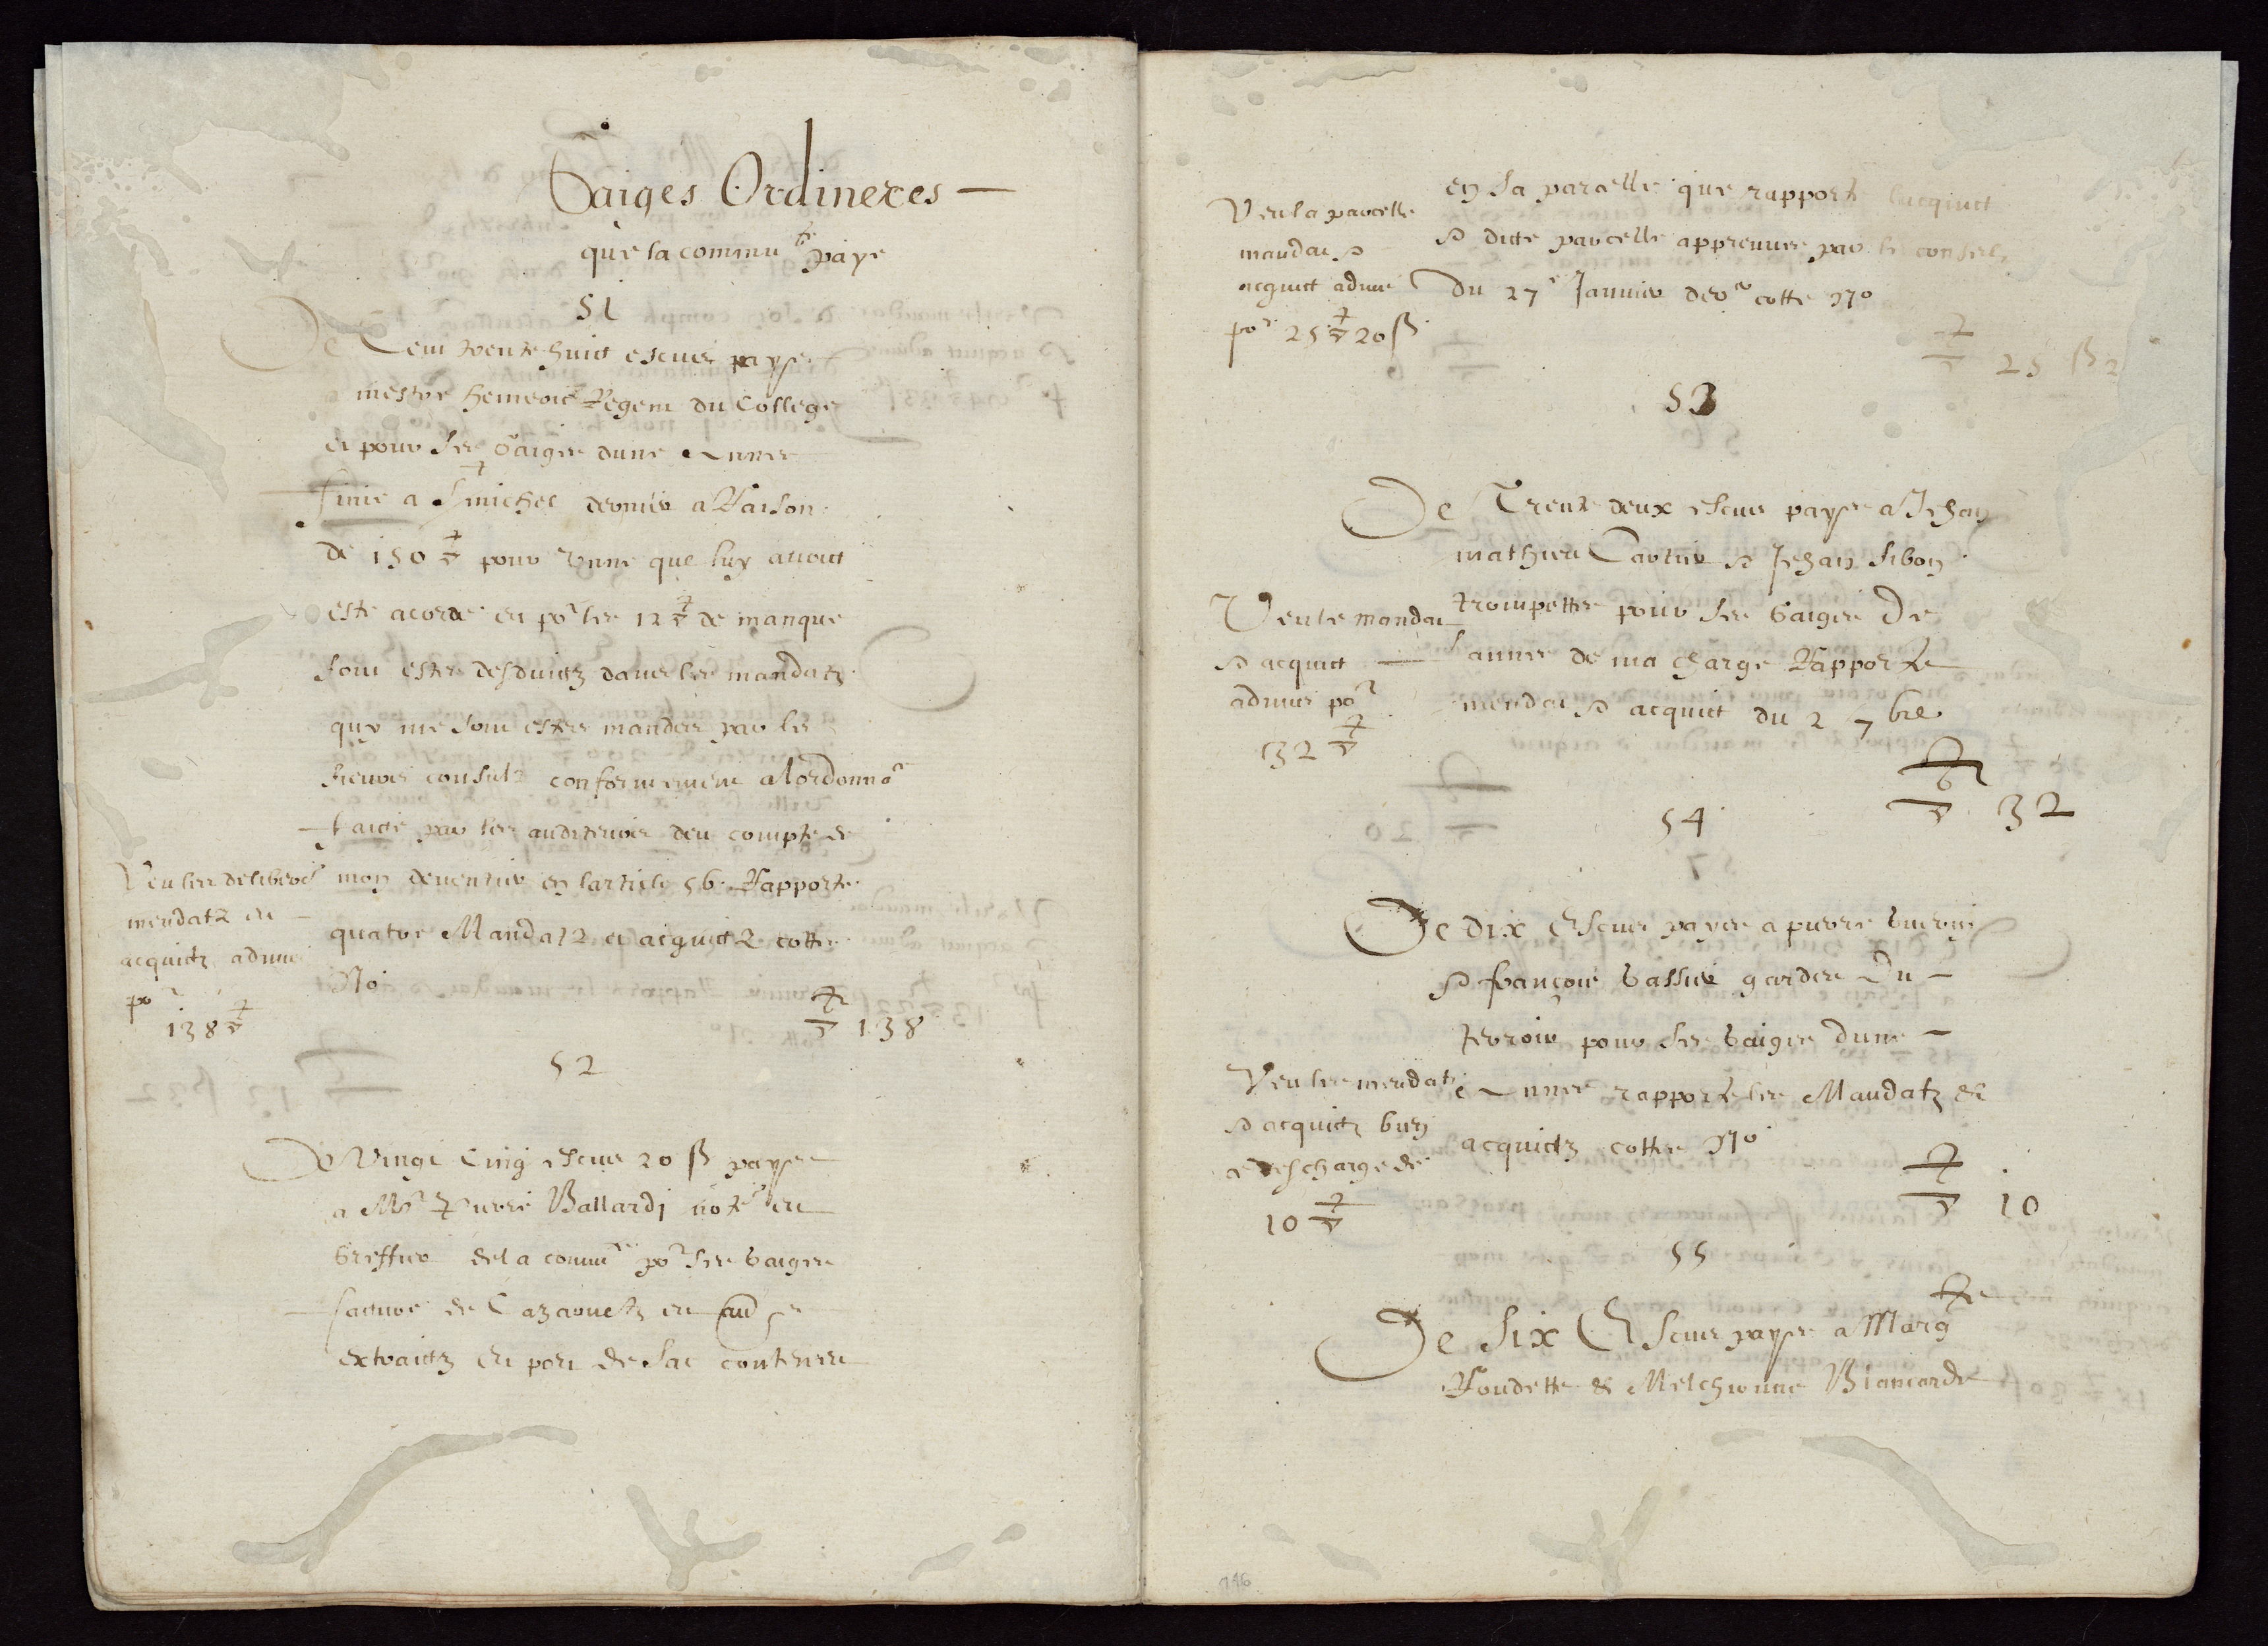 Gaiges Ordineres
que la commu.te paye
51
De Cent trente huict escus payes
mestre hemeric Regent du College
et pour ses gaiges dune annee
finie a St michel dernier a Raison
de 150 ▽ pour Unne que luy avoict
este acorde et por les 12 ▽ de manque
sont estes desduictz dans les mandatz
quy me sont estes mandes par les
sieurs consulz conformement a lordonnce
faicte par les auditeurs deu compte de
mon deventier en larticle 56 Rapporte
quatre Mandatz et acquictz cottes
No
▽ 138
Veu les deliberons
mendatz et
acquictz admis
por
138 ▽
52
De Vingt Cinq escus 20 ß payes
a Mr Pierre Ballardi notre et
Greffier de la commte por ses Gaiges
facture de Cazaouetz et
extraictz et port de sac contenus
en sa parcelle que rapporte lacquict
& ditte parcelle appreuvee par le conseil
du 27e Janvier der cotte No
▽ 25 ß 2
Veu la parcelle
mandat &
acquict admis
por 25 ▽ 20 ß
53
De Trente deux escus payes a Jehan
mathieu Cartier & Jehan Sibon
trompettes pour ses Gaiges De
lannee de ma charge Rapporte
mendat & acquict du 2 7bre
▽ 32
Veu le mandat
& acquict
admis por
32 ▽
54
De dix Escus payes a pierre
& françois Gassier gardes Du
terroir pour ses Gaiges dune
annee rapporte les Mandatz et
acquictz cottes No
▽ 10
Veu les mendatz
& acquictz bon
a descharge de
10 ▽
55
De Six Escus payes a Margte
Roudette & Melchionne Biancarde
146